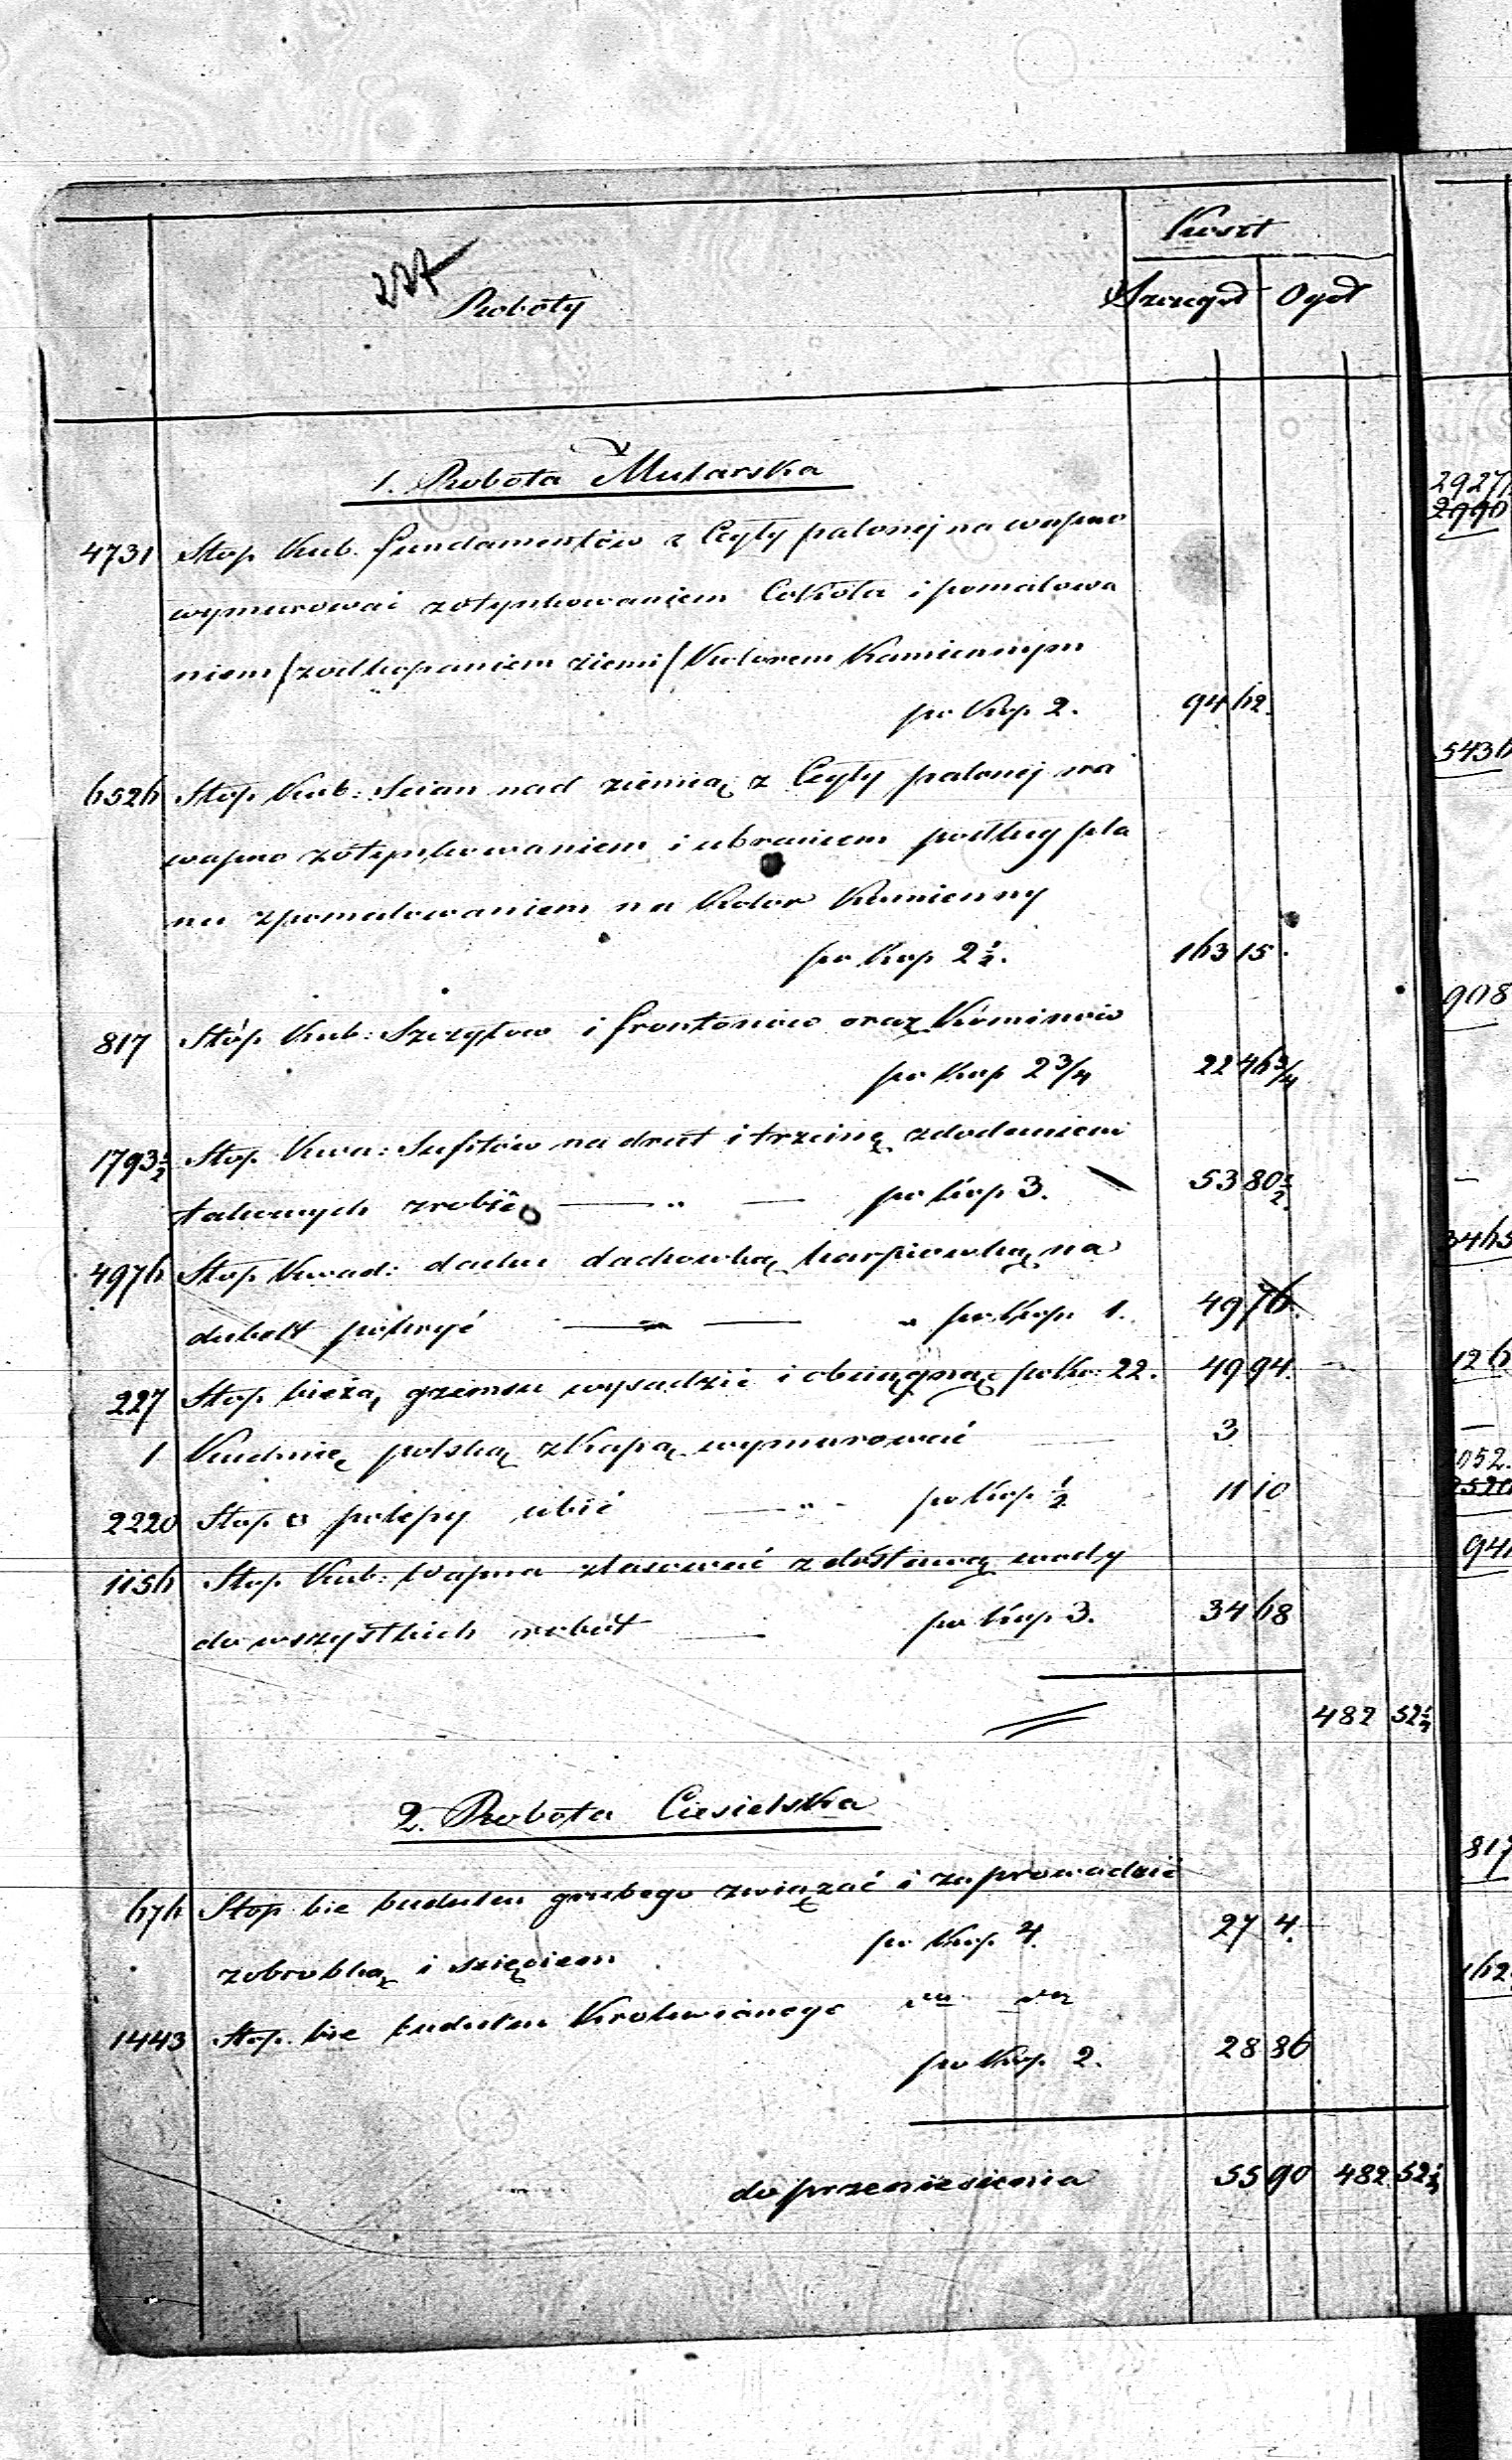 Koszt
227
Roboty Szczegół Ogół
1. Robota Mularska
4731 Stop Kub. fundamentów z Cegły palonej na wapno
wymurować zotynkowaniem Cokoła i pomalowa
niem /zodkopaniem ziemi/ Kolorem Kamiennym
po Kop 2. 94 62.
6526 Stop Kub: Scian nad ziemią z Cegły palonej na
wapno zotynkowaniem i ubraniem podług pla
nu zpomalowaniem na Kolor Kamienny
po Kop 2½. 163 15.
817 Stóp Kub: Szczytow i frontonów oraz Kominów
po Kop 2 3/4 22 46 3/4
1793½ Stop Kwa: Sufitów na drut i trzcinę zdodaniem
takowych zrobić — „ — po Kop 3. 53 80½.
4976 Stop Kwad: dachu dachowką karpiowką na
dubelt pokryć — „ — „ po Kop. 1. 49 76.
227 Stop bieżą gzemsu wysadzić i obciągnąć po Ko: 22. 49 94.
1 Kuchnię polską zKapą wymurować — 3
2220 Stop □ polepy ubić — „ - po Kop ½ 11 10
1156 Stop Kub: Wapna zlasować z dostawą wody
do wszystkich robót — po Kop 3. 34 68
482 52¼
2. Robota Ciesielska
676 Stop bie budulcu grubego związać i zaprowadzić
zobrobką i szięciem po Kop 4. 27 4.
1443 Stop. bie budulcu Krokwianego
po Kop. 2. 28 86
do przeniesienia 55 90 482 52¼